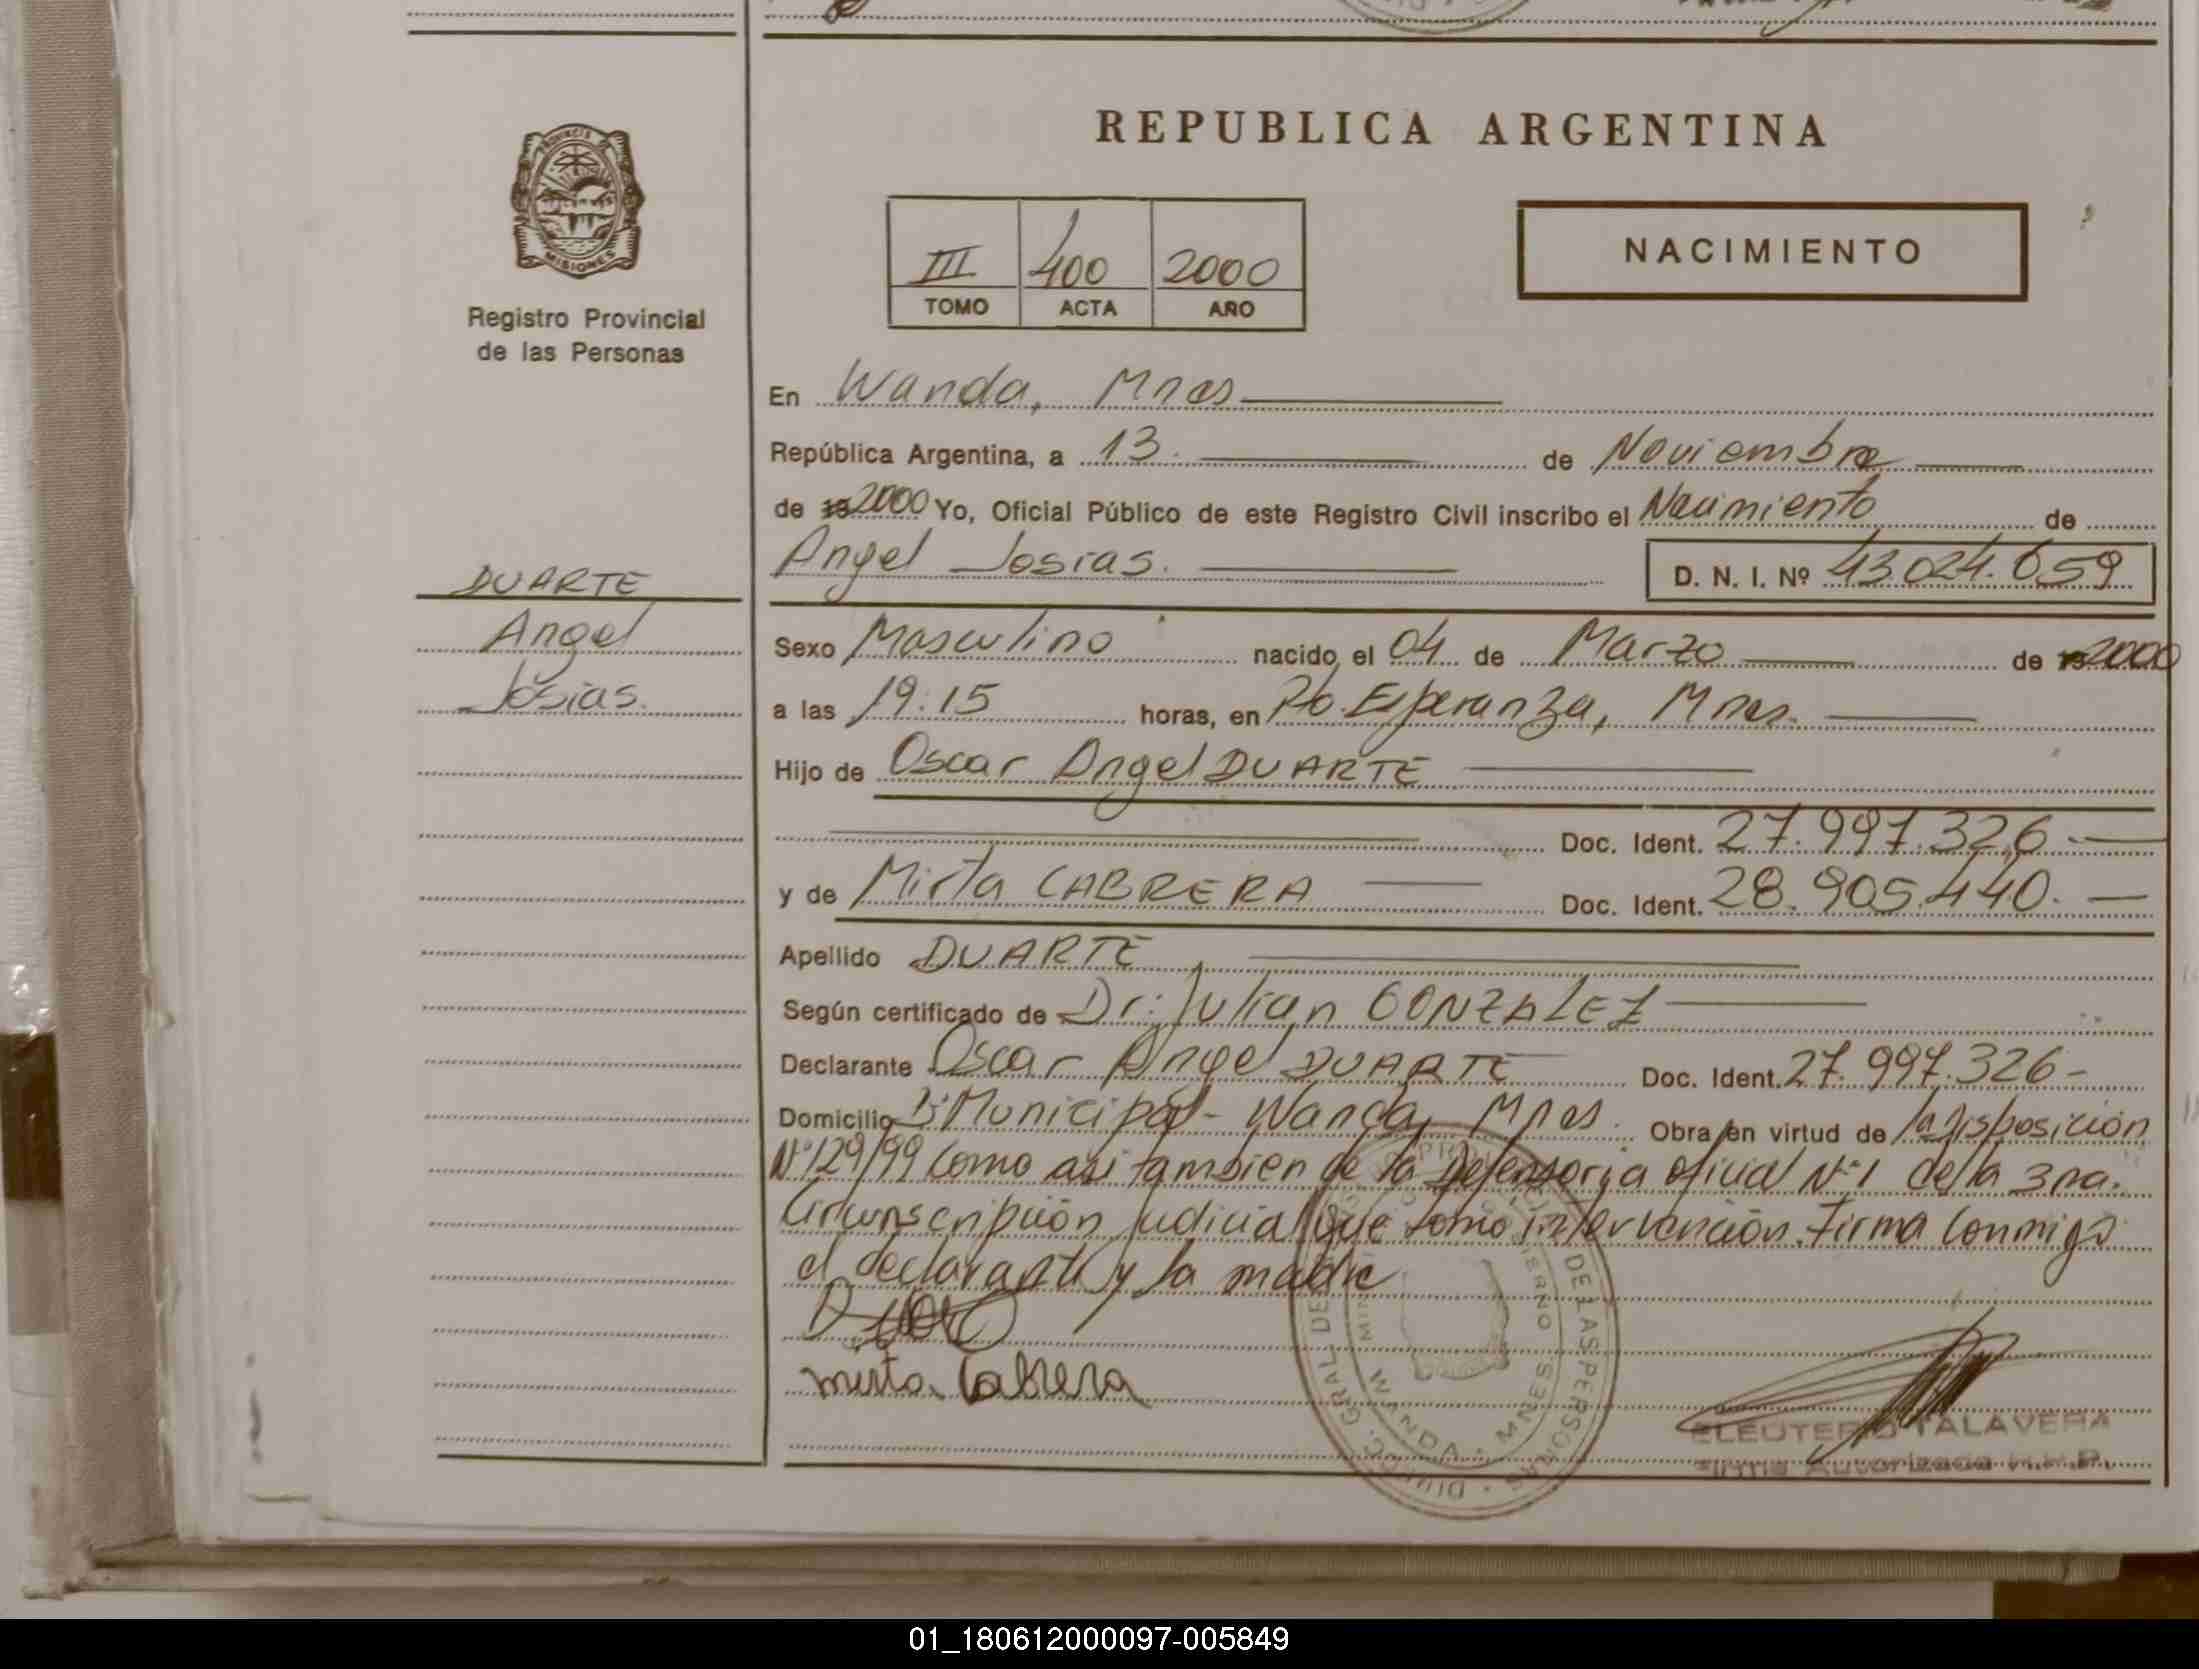 REPUBLICA ARGENTINA
PROVINCIA DE MISIONES
Registro Provincial
de las Personas
III 400 2000
TOMO ACTA AÑO
NACIMIENTO
En Wanda, Mnes
República Argentina, a 13 de Noviembre
de 19 2000 Yo, Oficial Público de este Registro Civil inscribo el Nacimiento de
Angel Josias. D. N. I. Nº 43.024.659
DUARTE
Angel
Josias.
Sexo Masculino nacido el 04 de Marzo de 19 2000
a las 19:15 horas, en Pto. Esperanza, Mnes.
Hijo de Oscar Angel DUARTE
Doc. Ident. 27.997.326.-
y de Mirta CABRERA Doc. Ident. 28.905.440.-
Apellido DUARTE
Según certificado de Dr. Julian GONZALEZ
Declarante Oscar Angel DUARTE Doc. Ident. 27.997.326-
Domicilio Bº Municipal - Wanda, Mnes. Obra en virtud de la Disposición
Nº 129/99 como asi tambien de la Defensoria oficial Nº 1 de la 3ra.
Circunscripción judicial que tomo intervención. Firma conmigo
el declarante y la madre
mirta Cabrera
DIRECC. GRAL DE DE LAS PERSONAS
WANDA - MNES
ELEUTERIO TALAVERA
Firma Autorizada
01_180612000097-005849